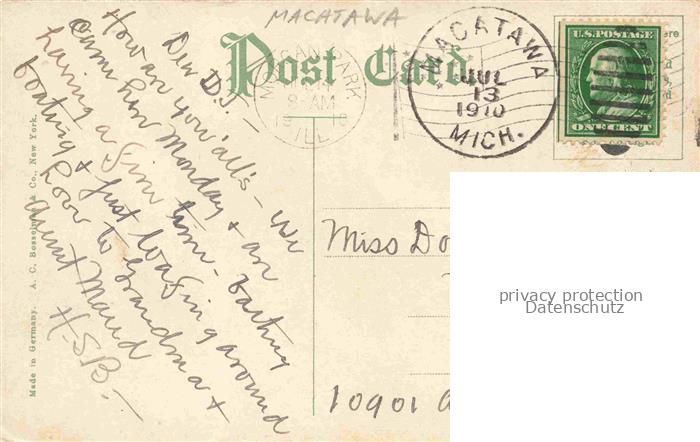 MACATAWA
Post Card
MACATAWA
JUL
13
1910
MICH.
MORGAN PARK
8 AM
19 10
ILL
U.S. POSTAGE
ONE CENT
Dear D. –
How are you all's – We
came here Monday & are
having a fine time. Bathing
boating & just loafing around
Love to Grandma &
Aunt Maud
H.S.B. –
Miss Do
10901
privacy protection
Datenschutz
Made in Germany. A. C. Bosselman & Co., New York.